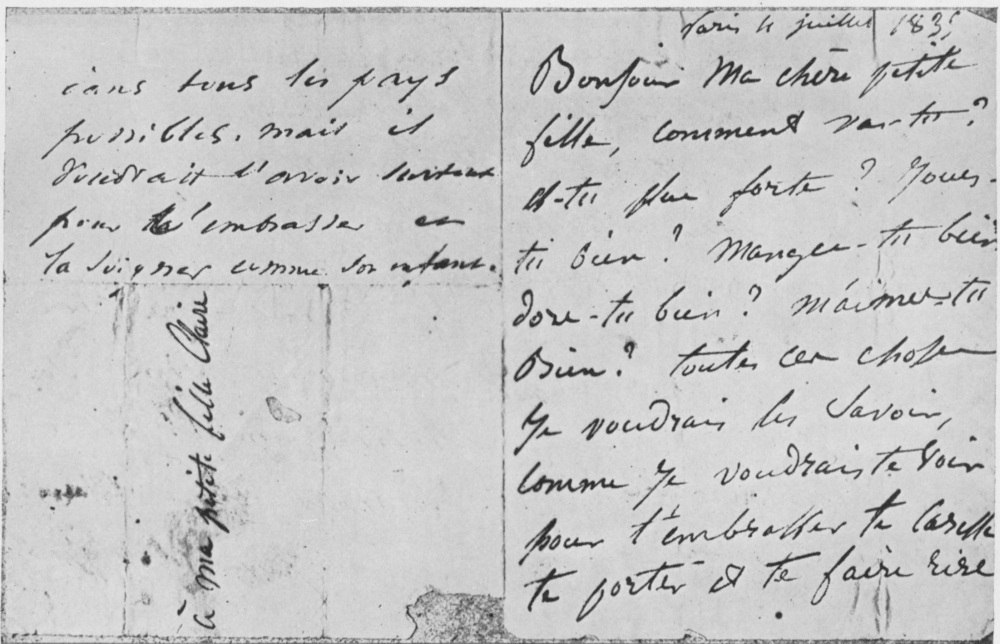 Paris 4 juillet 183
Bonjour Ma chère petite
fille, comment vas-tu?
es-tu plus forte? Joues-
tu bien? Manges-tu bien
dors-tu bien? M'aimes-tu
Bien? toutes ces choses
Je voudrais les savoir,
comme Je voudrais te voir
pour t'embrasser te caresser
te porter et te faire rire
dans tous les pays
possibles. mais il
voudrait l'avoir surtout
pour l'embrasser et
la soigner comme son enfant.
à ma petite fille Claire